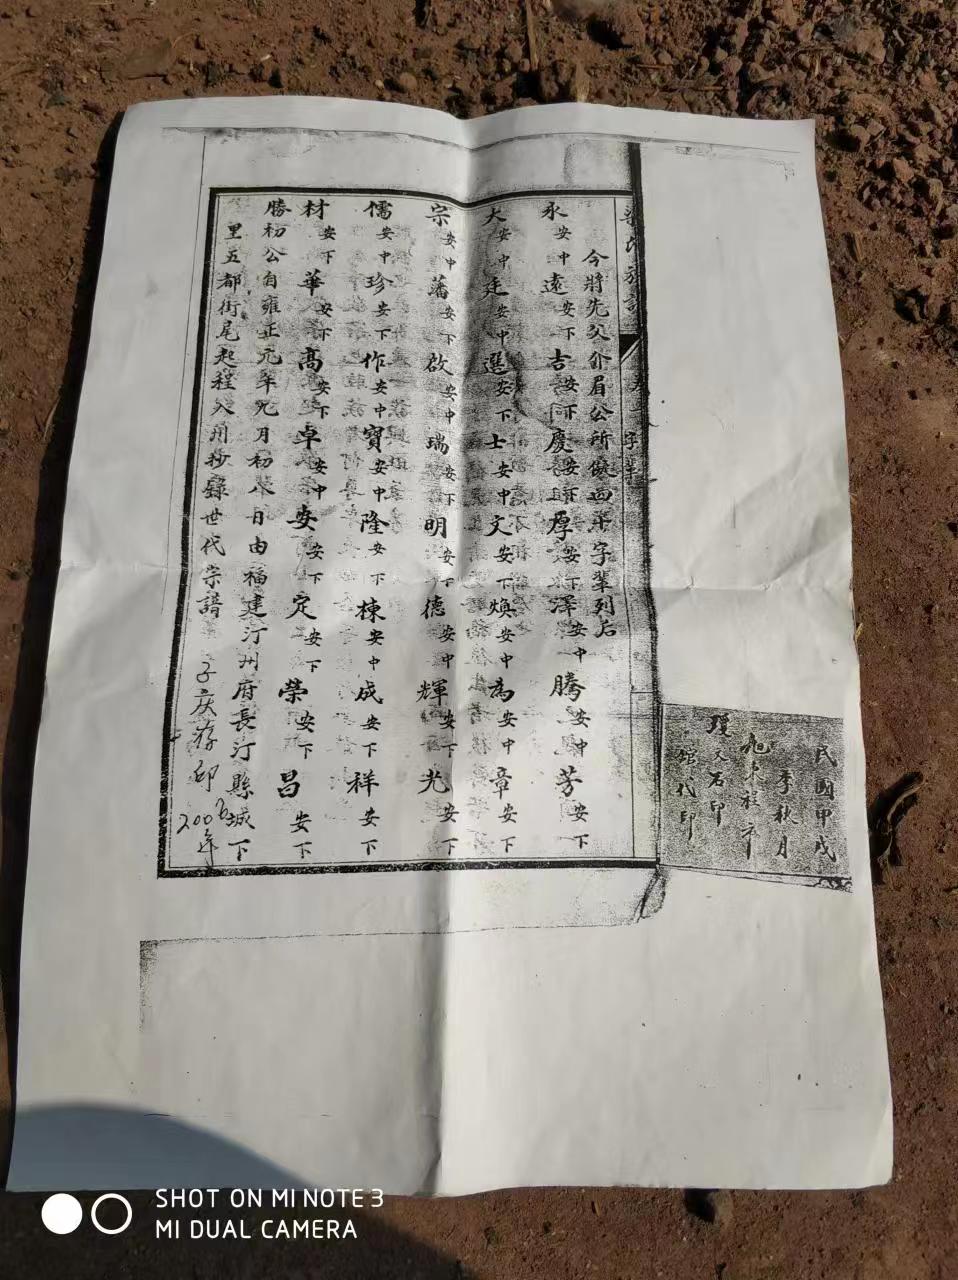 民國甲戌
季秋月
旭東程市
石印
館代印
族譜
字輩
今將先父介眉公所儗四十字輩列后
永安中遠安下吉安下慶安下厚安下澤安中騰安中芳安下
大安中廷安中選安下士安中文安下煥安中為安中章安下
宗安中藩安下啟安中瑞安下明安下德安中輝安下光安下
儒安中珍安下作安中寶安中隆安下棟安中成安下祥安下
材安下華安下高安下卓安中安安下定安下榮安下昌安下
勝初公自雍正元年九月初八日由福建汀州府長汀縣城下
里五都街尾起程入州抄錄世代宗譜
子庆游印
200年
SHOT ON MI NOTE 3
MI DUAL CAMERA